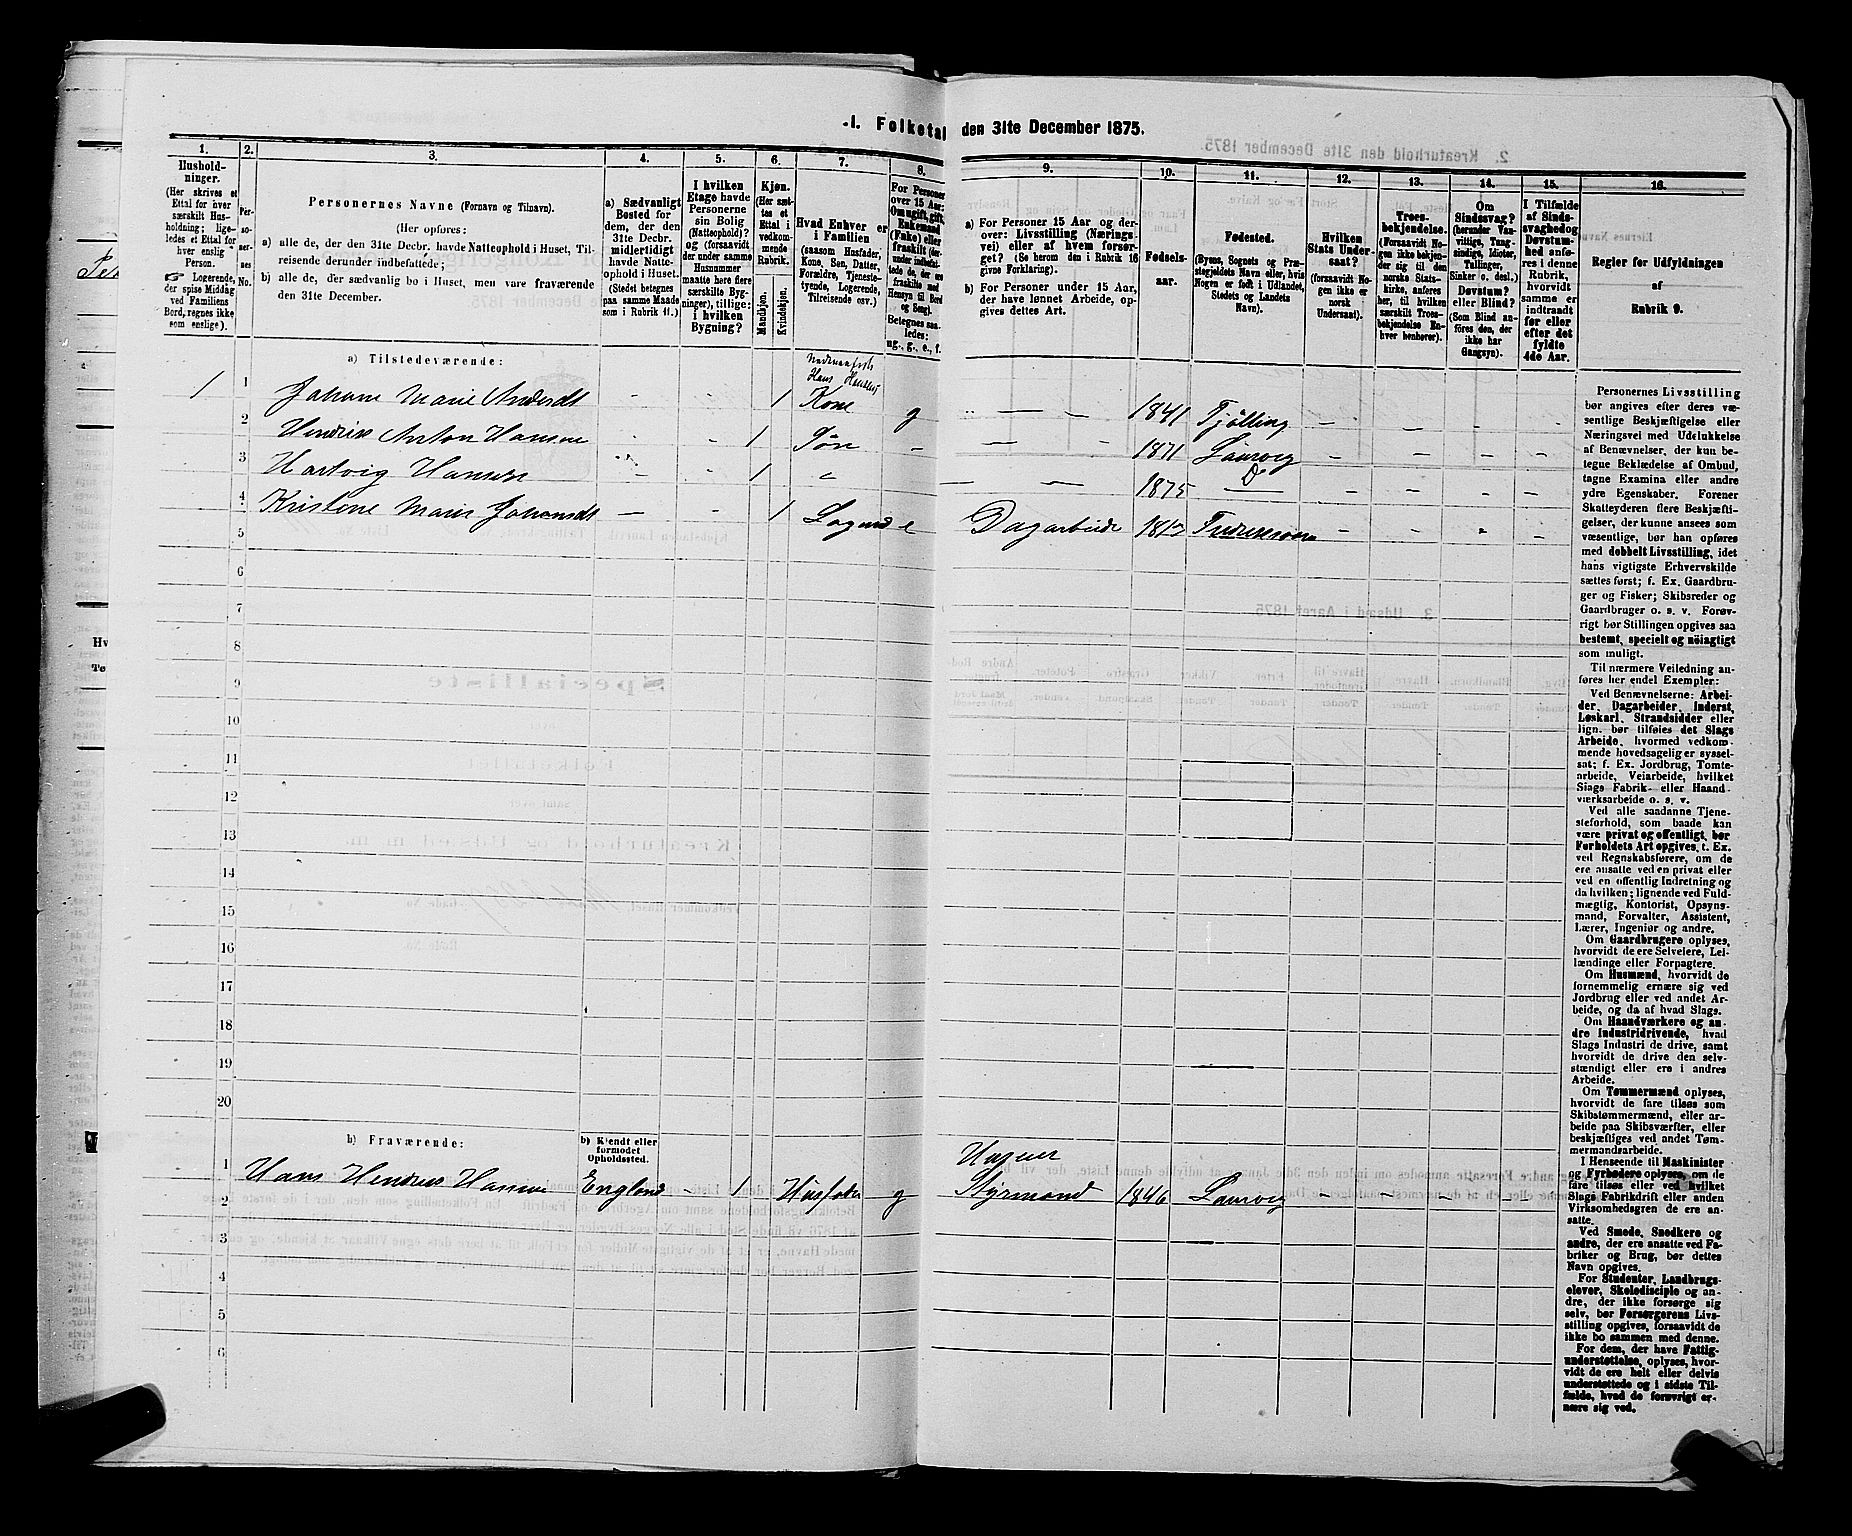 1. Folketal den 31te December 1875.
1. 2. 3. 4. 5. 6. 7. 8. 9. 10. 11. 12. 13. 14. 15. 16.
Husholdninger.
(Her skrives et
Ettal for hver
særskilt Husholdning;
ligeledes
et Ettal for
hver enslig
Person.
Logerende,
der spise Middag
ved Familiens
Bord, regnes ikke
som enslige).
Personernes No.
Personernes Navne (Fornavn og Tilnavn).
(Her opføres:
a) alle de, der den 31te Decbr. havde Natteophold i Huset, Tilreisende derunder indbefattede;
b) alle de, der sædvanlig bo i Huset, men vare fraværende
den 31te December.
a) Sædvanligt
Bosted for
dem, der den
31te Decbr.
midlertidigt
havde Natteophold
i Huset.
(Stedet betegnes
paa samme Maade
som i Rubrik 11.)
I hvilken
Etage havde
Personerne
sin Bolig
(Natteophold)?
og (forsaavidt
der under samme
Husnummer
maatte høre flere
særskilte Bygninger),
tillige:
i hvilken
Bygning?
Kjøn.
(Her sættes
et
Ettal i
vedkommende
Rubrik.
Mandkjøn. Kvindekjøn.
Hvad Enhver er
i Familien
(saasom Husfader,
Kone, Søn, Datter,
Forældre, Tjenestetyende,
Logerende,
Tilreisende osv.)
For Personer
over 15 Aar:
Om ugift, gift,
Enkemand
(Enke) eller
fraskilt
Betegnes saaledes:
ug., g., e., f.
a) For Personer 15 Aar og derover:
Livsstilling (Næringsvei)
eller af hvem forsørget?
(Se herom den i Rubrik 16
givne Forklaring).
b) For Personer under 15 Aar,
der have lønnet Arbeide, opgives
dettes Art.
Fødselsaar.
Fødested.
(Byens, Sognets og Præstegjeldets
Navn eller, hvis
Nogen er født i Udlandet,
Stedets og Landets
Navn).
Hvilken
Stats Undersaat?
(forsaavidt Nogen
ikke er
norsk
Undersaat).
Troesbekjendelse.
(Forsaavidt Nogen
ikke bekjender
sig til den
norske Statskirke,
anføres
her, til hvilken
særskilt Troesbekjendelse
Enhver
henhører).
Om
Sindssvag?
(herunder Vanvittige,
Tungsindige,
Idioter,
Tullinger,
Sinker o. desl.)
Døvstum?
eller Blind?
(Som Blind anføres
den, der
ikke har
Gangsyn).
I Tilfælde
af Sindssvaghed
og
Døvstumhed
anføres
i denne
Rubrik,
hvorvidt
samme er
indtraadt
før eller
efter det
fyldte
4de Aar.
Regler for Udfyldningen
af
Rubrik 9.
a) Tilstedeværende:
Hans Hansens
1 1 Johane Marie Andersdt - - 1 Kone g - - - 1841 Tjølling - - - -
2 Hendrik Anton Hansen - - 1 Søn - - - 1871 Laurvig - - - -
3 Hartvig Hansen - - 1 " - - 1875 Do - - - -
4 Kristine Marie Johansdt - - 1 Logerend e Dagarbeide Fredriksværn - - - -
5
6
7
8
9
10
11
12
13
14
15
16
17
18
19
20
b) Fraværende:
b) Kjendt eller
formodet
Opholdssted.
1 Hans Hendrik Hansen England - 1 Husfader g Styrmand 1846 Laurvig - - - -
2
3
4
5
6
Personernes Livsstilling
bør angives efter deres væsentlige
Beskjæftigelse eller
Næringsvei med Udelukkelse
af Benævnelser, der kun betegne
Beklædelse af Ombud,
tagne Examina eller andre
ydre Egenskaber. Forener
Skatteyderen flere Beskjæftigelser,
der kunne ansees som
væsentlige, bør han opføres
med dobbelt Livsstilling, idet
hans vigtigste Erhvervskilde
sættes først; f. Ex. Gaardbruger
og Fisker; Skibsreder og
Gaardbruger o. s. v. Forøvrigt
bør Stillingen opgives saa
bestemt, specielt og nöiagtigt
som muligt.
Til nærmere Veiledning anføres
her endel Exempler:
Ved Benævnelserne: Arbeider,
Dagarbeider, Inderst,
Løskarl, Strandsidder eller
lign. bør tilføies det Slags
Arbeide, hvormed vedkommende
hovedsagelig er sysselsat;
f. Ex. Jordbrug, Tomtearbeide,
Veiarbeide, hvilket
Slags Fabrik- eller Haandværksarbeide
o. s. v.
Ved alle saadanne Tjenesteforhold,
som baade kan
være privat og offentligt, bør
Forholdets Art opgives, f. Ex.
ved Regnskabsførere, om de
ere ansatte ved en privat eller
ved en offentlig Indretning og
da hvilken; lignende ved Fuldmægtig,
Kontorist, Opsynsmand,
Forvalter, Assistent,
Lærer, Ingeniør og andre.
Om Gaardbrugere oplyses,
hvorvidt de ere Selveiere, Leilændinge
eller Forpagtere.
Om Husmænd, hvorvidt de
fornemmelig ernære sig ved
Jordbrug eller ved andet Arbeide,
og da af hvad Slags.
Om Haandværkere og andre
Industridrivende, hvad
Slags Industri de drive, samt
hvorvidt de drive den selvstændigt
eller ere i andres
Arbeide.
Om Tømmermænd oplyses,
hvorvidt de fare tilsøs som
Skibstømmermænd, eller arbeide
paa Skibsværfter, eller
beskjæftiges ved andet Tømmermandsarbeide.
I Henseende til Maskinister
og Fyrbødere oplyses, om de
fare tilsøs eller ved hvilket
Slags Fabrikdrift eller anden
Virksomhedsgren de ere ansatte.
Ved Smede, Snedkere og
andre, der ere ansatte ved Fabriker
og Brug, bør dettes
Navn opgives.
For Studenter, Landbrugselever,
Skoledisciple og andre,
der ikke forsørge sig
selv, bør Forsørgerens Livsstilling
opgives, forsaavidt de
ikke bo sammen med denne.
For dem, der have Fattigunderstøttelse,
oplyses, hvorvidt
de ere helt eller delvis
understøttede og i sidste Tilfælde,
hvad de forøvrigt ernære
sig ved.